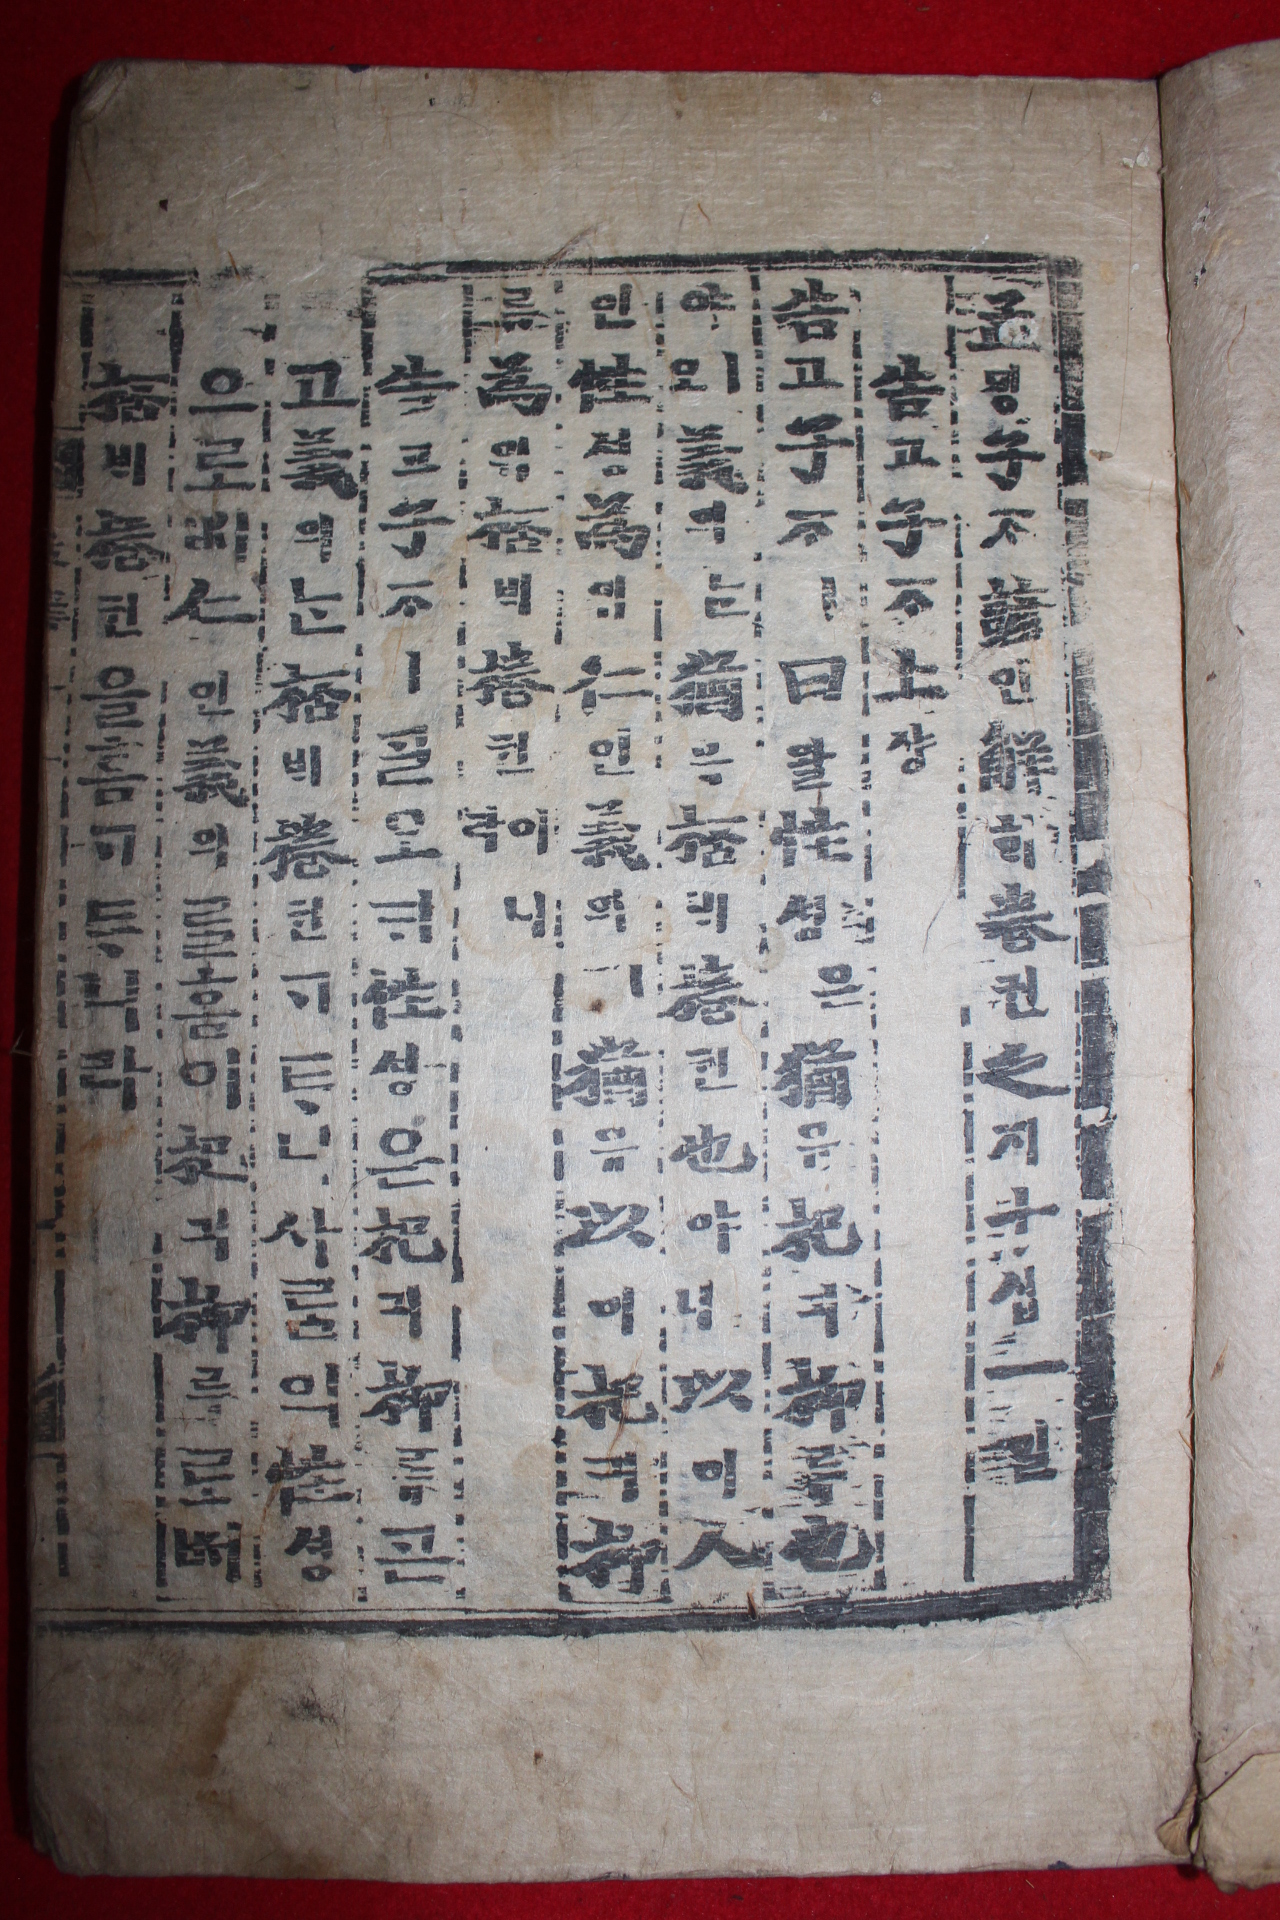 孟ᄆᆡᆼ子ᄌᆞ諺언解ᄒᆡ卷권之지十십一일
告고子ᄌᆞ上샹
告고子ᄌᆞㅣ曰왈性셩은猶유杞긔柳류也
야ㅣ오義의ᄂᆞᆫ猶유桮ᄇᆡ棬권也야ㅣ니以이人
인性셩爲위仁인義의ㅣ猶유以이杞긔柳
류爲위桮ᄇᆡ棬권이니라
告고子ᄌᆞㅣ ᄀᆞᆯ오ᄃᆡ性셩은杞긔柳류ᄀᆞᆮ
고義의ᄂᆞᆫ桮ᄇᆡ棬권ᄀᆞᄐᆞ니사ᄅᆞᆷ의性셩
으로ᄡᅥ仁인義의ᄅᆞᆯ홈이杞긔柳류로ᄡᅥ
桮ᄇᆡ棬권을ᄆᆡᆼᄀᆞᆷᄀᆞᄐᆞ니라